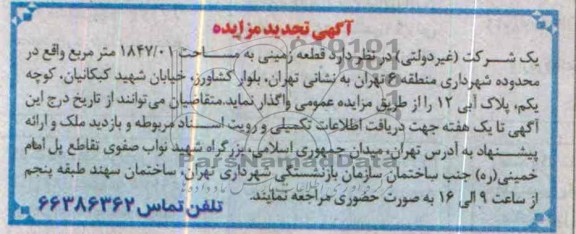 آگهی تجدید مزایده
یک شرکت (غیردولتی) در نظر دارد قطعه زمینی به مساحت ۱۸۴۷/۰۱ متر مربع واقع در
محدوده شهرداری منطقه ۶ تهران به نشانی تهران، بلوار کشاورز، خیابان شهید کبکانیان، کوچه
یکم، پلاک آبی ۱۲ را از طریق مزایده عمومی واگذار نماید.متقاضیان می‌توانند از تاریخ درج این
آگهی تا یک هفته جهت دریافت اطلاعات تکمیلی و رویت اسناد مربوطه و بازدید ملک و ارائه
پیشنهاد به آدرس تهران، میدان جمهوری اسلامی، بزرگراه شهید نواب صفوی تقاطع پل امام
خمینی(ره) جنب ساختمان سازمان بازنشستگی شهرداری تهران، ساختمان سهند طبقه پنجم
از ساعت ۹ الی ۱۶ به صورت حضوری مراجعه نمایند.
تلفن تماس ۶۶۳۸۶۳۶۲
ParsNamadData